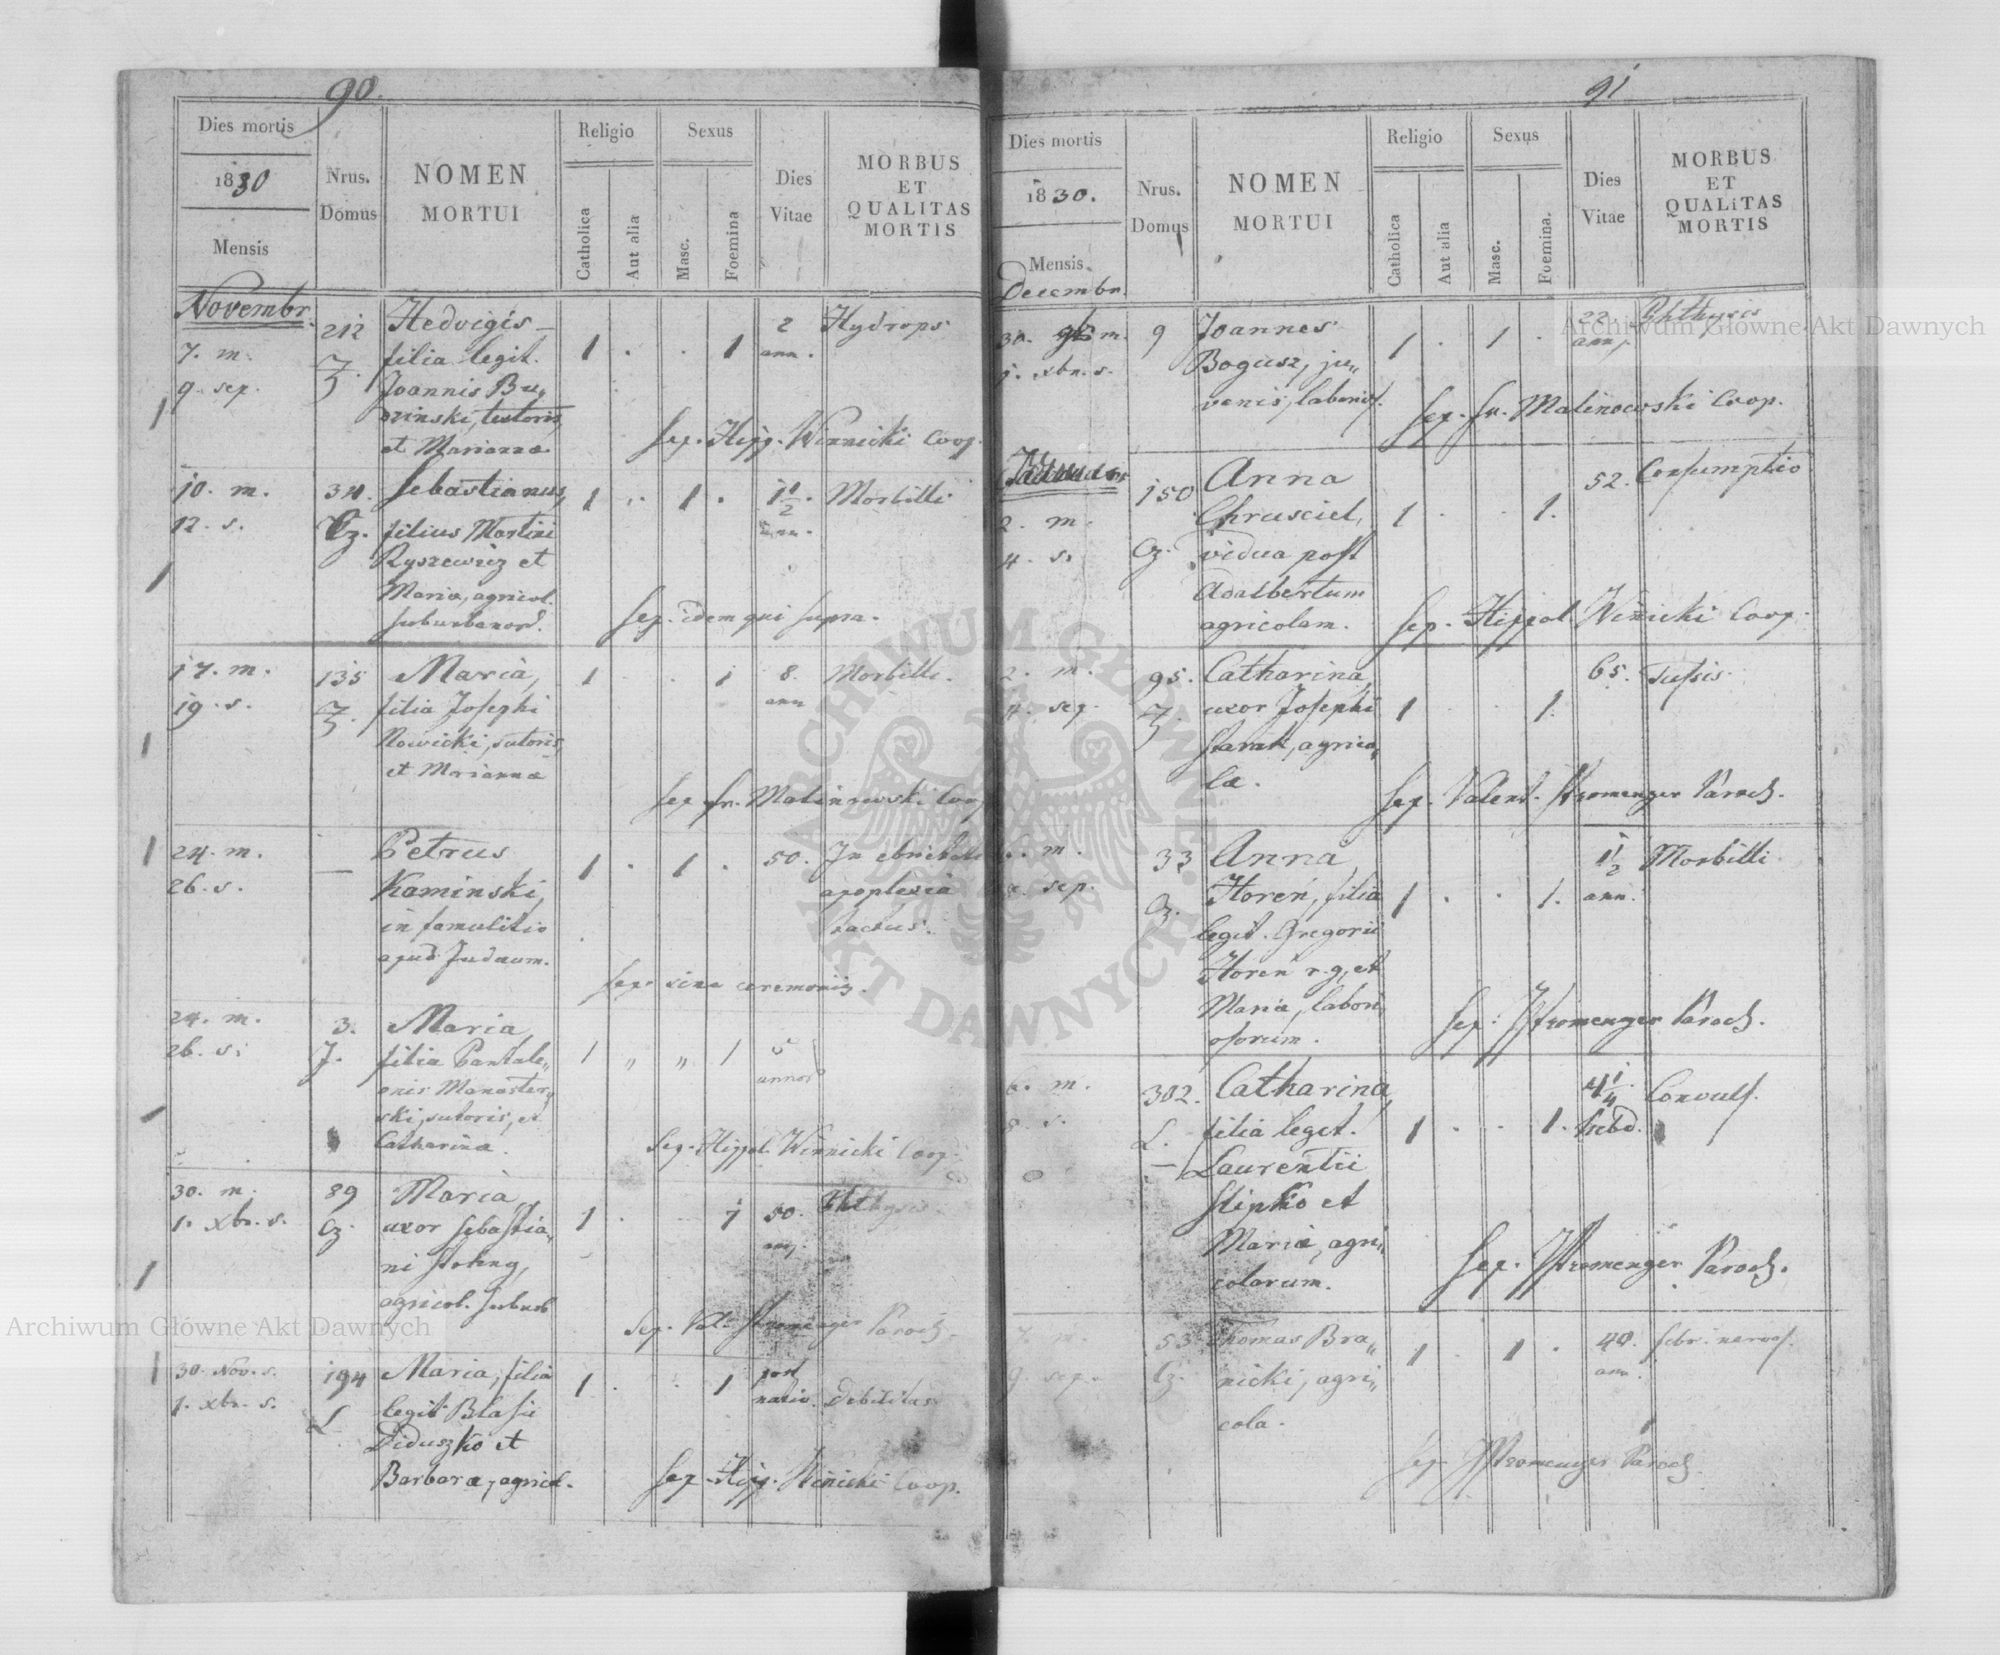 90.
Dies mortis
1830
Mensis
Nrus.
Domus
NOMEN
MORTUI
Religio
Catholica
Aut alia
Sexus
Masc.
Foemina
Dies
Vitae
MORBUS
ET
QUALITAS
MORTIS
Novembr.
7. m.
9. sep.
212
Hedvigis
filia legit.
Joannis Bu„
et Marianna
1 . . 1
2
ann.
Hydrops
Sep. Hipp. Winnicki Coop.
10. m.
12. s.
34.
Cz.
Sebastianus,
filius Martini
Ryszewicz et
Maria, agricol.
suburbanor.
1 . 1 .
1 1/2
ann.
Morbilli
Sep. idem qui supra.
17. m.
19. s.
135
Maria,
filia Josephi
Nowicki, sutoris,
et Marianna
1 . . 1
8.
ann
Morbilli.
Sep. Fr. Malinowski Coop
24. m.
26. s.
—
Petrus
Kaminski,
in famulitio
apud Judaeum.
1 . 1 .
50.
In ebrietate
apoplexia
tactus.
Sep. sine ceremoniis.
24. m.
26. s.
3.
J.
Maria
filia Pantale„
onis Monaster„
ski, sutoris, et
Catharina.
1 „ „ 1
5
annor
Sep. Hippol. Winnicki Coop.
30. m.
1. xbr. s.
89
Cz.
Maria,
uxor Sebastia„
ni
agricol. suburb
1 . . 1
50.
ann.
Phthysis.
Sep. Val. Stromenger Paroch.
30. Nov. s.
1. xbr. s.
194
L
Maria, filia
legit. Blasii
Diduszko et
Barbara, agricol.
1 . . 1
post
nativ.
Debilitas
Sep. Hipp. Winicki Coop.
91
Dies mortis
1830.
Mensis
Decembr.
Nrus.
Domus
NOMEN
MORTUI
Religio
Catholica
Aut alia
Sexus
Masc.
Foemina.
Dies
Vitae
MORBUS
ET
QUALITAS
MORTIS
30. m.
1. xbr. s.
9
Joannes
Bogusz, ju„
venis, laborios.
1 . 1 .
22.
ann.
Phthysis
Sep. Fr. Malinowski Coop.
2. m.
4. s.
150
Cz.
Anna
Chrusciel,
vidua post
Adalbertum
agricolam.
1 . . 1.
52.
Consumptio
Sep. Hippol. Winicki Coop.
2. m.
4. sep.
95.
Catharina,
uxor Josephi
Starak, agrico„
la.
1 . . 1.
65.
Tussis.
Sep. Valent. Stromenger Paroch.
m.
sep.
33
Cz.
Anna
Horeń, filia
legit. Gregorii
Horeń r. g. et
Maria, labori„
osorum.
1 . . 1.
1 1/2
ann.
Morbilli
Sep. Stromenger Paroch.
6. m.
8. s.
302.
L.
Catharina,
filia legit.
Laurentii
Slipko et
Maria, agri„
colarum.
1 . . 1.
4 1/4
hebd.
Convuls.
Sep. Stromenger Paroch.
7. m.
9. sep.
53.
Cz.
Thomas Bra„
nicki, agri„
cola.
1 . 1 .
40.
ann.
febr. nervos.
Sep. Stromenger Paroch.
Archiwum Główne Akt Dawnych
Archiwum Główne Akt Dawnych
ARCHIWUM GŁÓWNE
AKT DAWNYCH